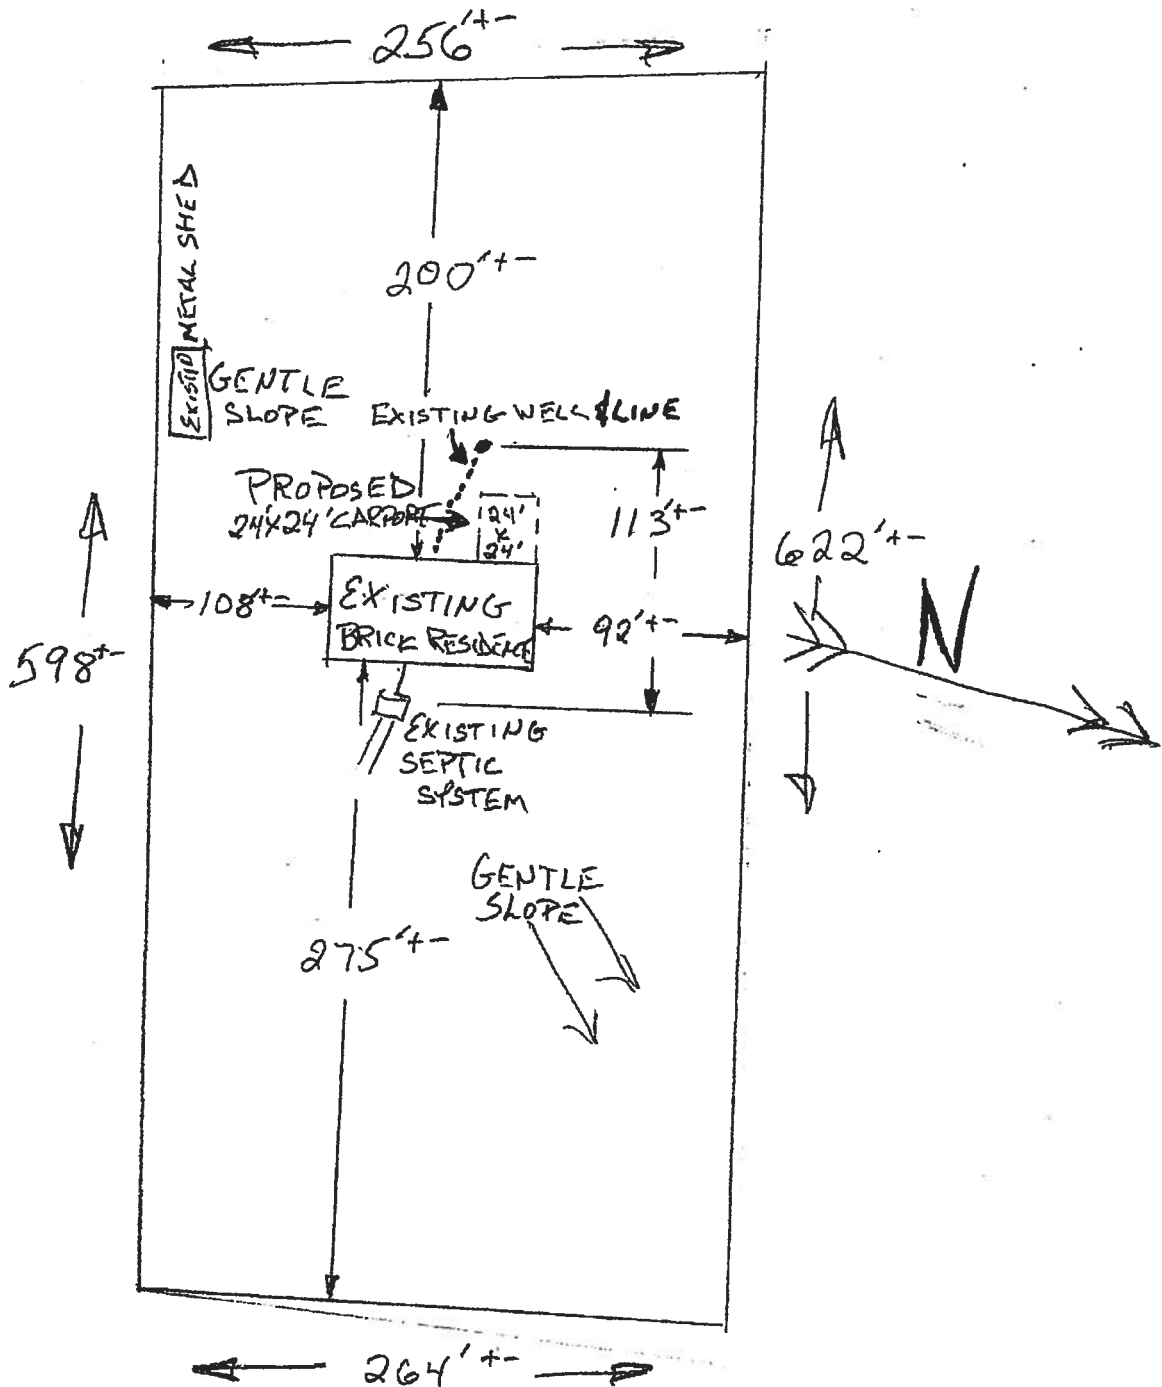 256'+-
METAL SHED
200'+-
EXISTING
GENTLE
SLOPE
EXISTING WELL & LINE
PROPOSED
24'X24' CARPORT
24'
X
24'
113'+-
622'+-
N
108'+-
EXISTING
BRICK RESIDENCE
92'+-
598'+-
EXISTING
SEPTIC
SYSTEM
GENTLE
SLOPE
275'+-
264'+-